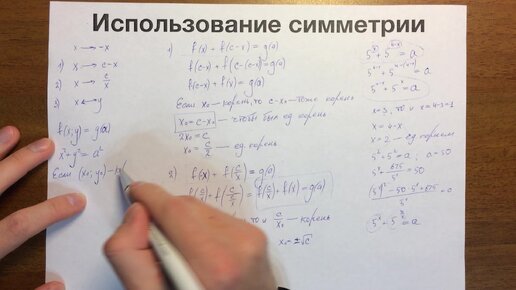 Использование симметрии
x → -x
1) x → c-x
2) x → c/x
3) x ↔ y
f(x;y) = g(a)
x²+y² = a²
Если (x₀; y₀) –
1) f(x) + f(c-x) = g(a)
f(c-x) + f(c-(c-x)) = g(a)
f(c-x) + f(x) = g(a)
Если x₀ — корень, то c-x₀ — тоже корень
x₀ = c-x₀ — чтобы был ед. корень
2x₀ = c
x₀ = c/2 — ед. корень
2) f(x) + f(c/x) = g(a)
f(c/x) + f(x) = g(a)
то и c/x₀ — корень
x₀ = ±√c
5ˣ + 5⁴⁻ˣ = a
5⁴⁻ˣ + 5⁴⁻⁽⁴⁻ˣ⁾ = a
5⁴⁻ˣ + 5ˣ = a
x=3, то и x=4-3=1
x = 4-x
x = 2 — ед. корень
5² + 5² = a, a = 50
5ˣ + 625/5ˣ = 50
= 0
= a